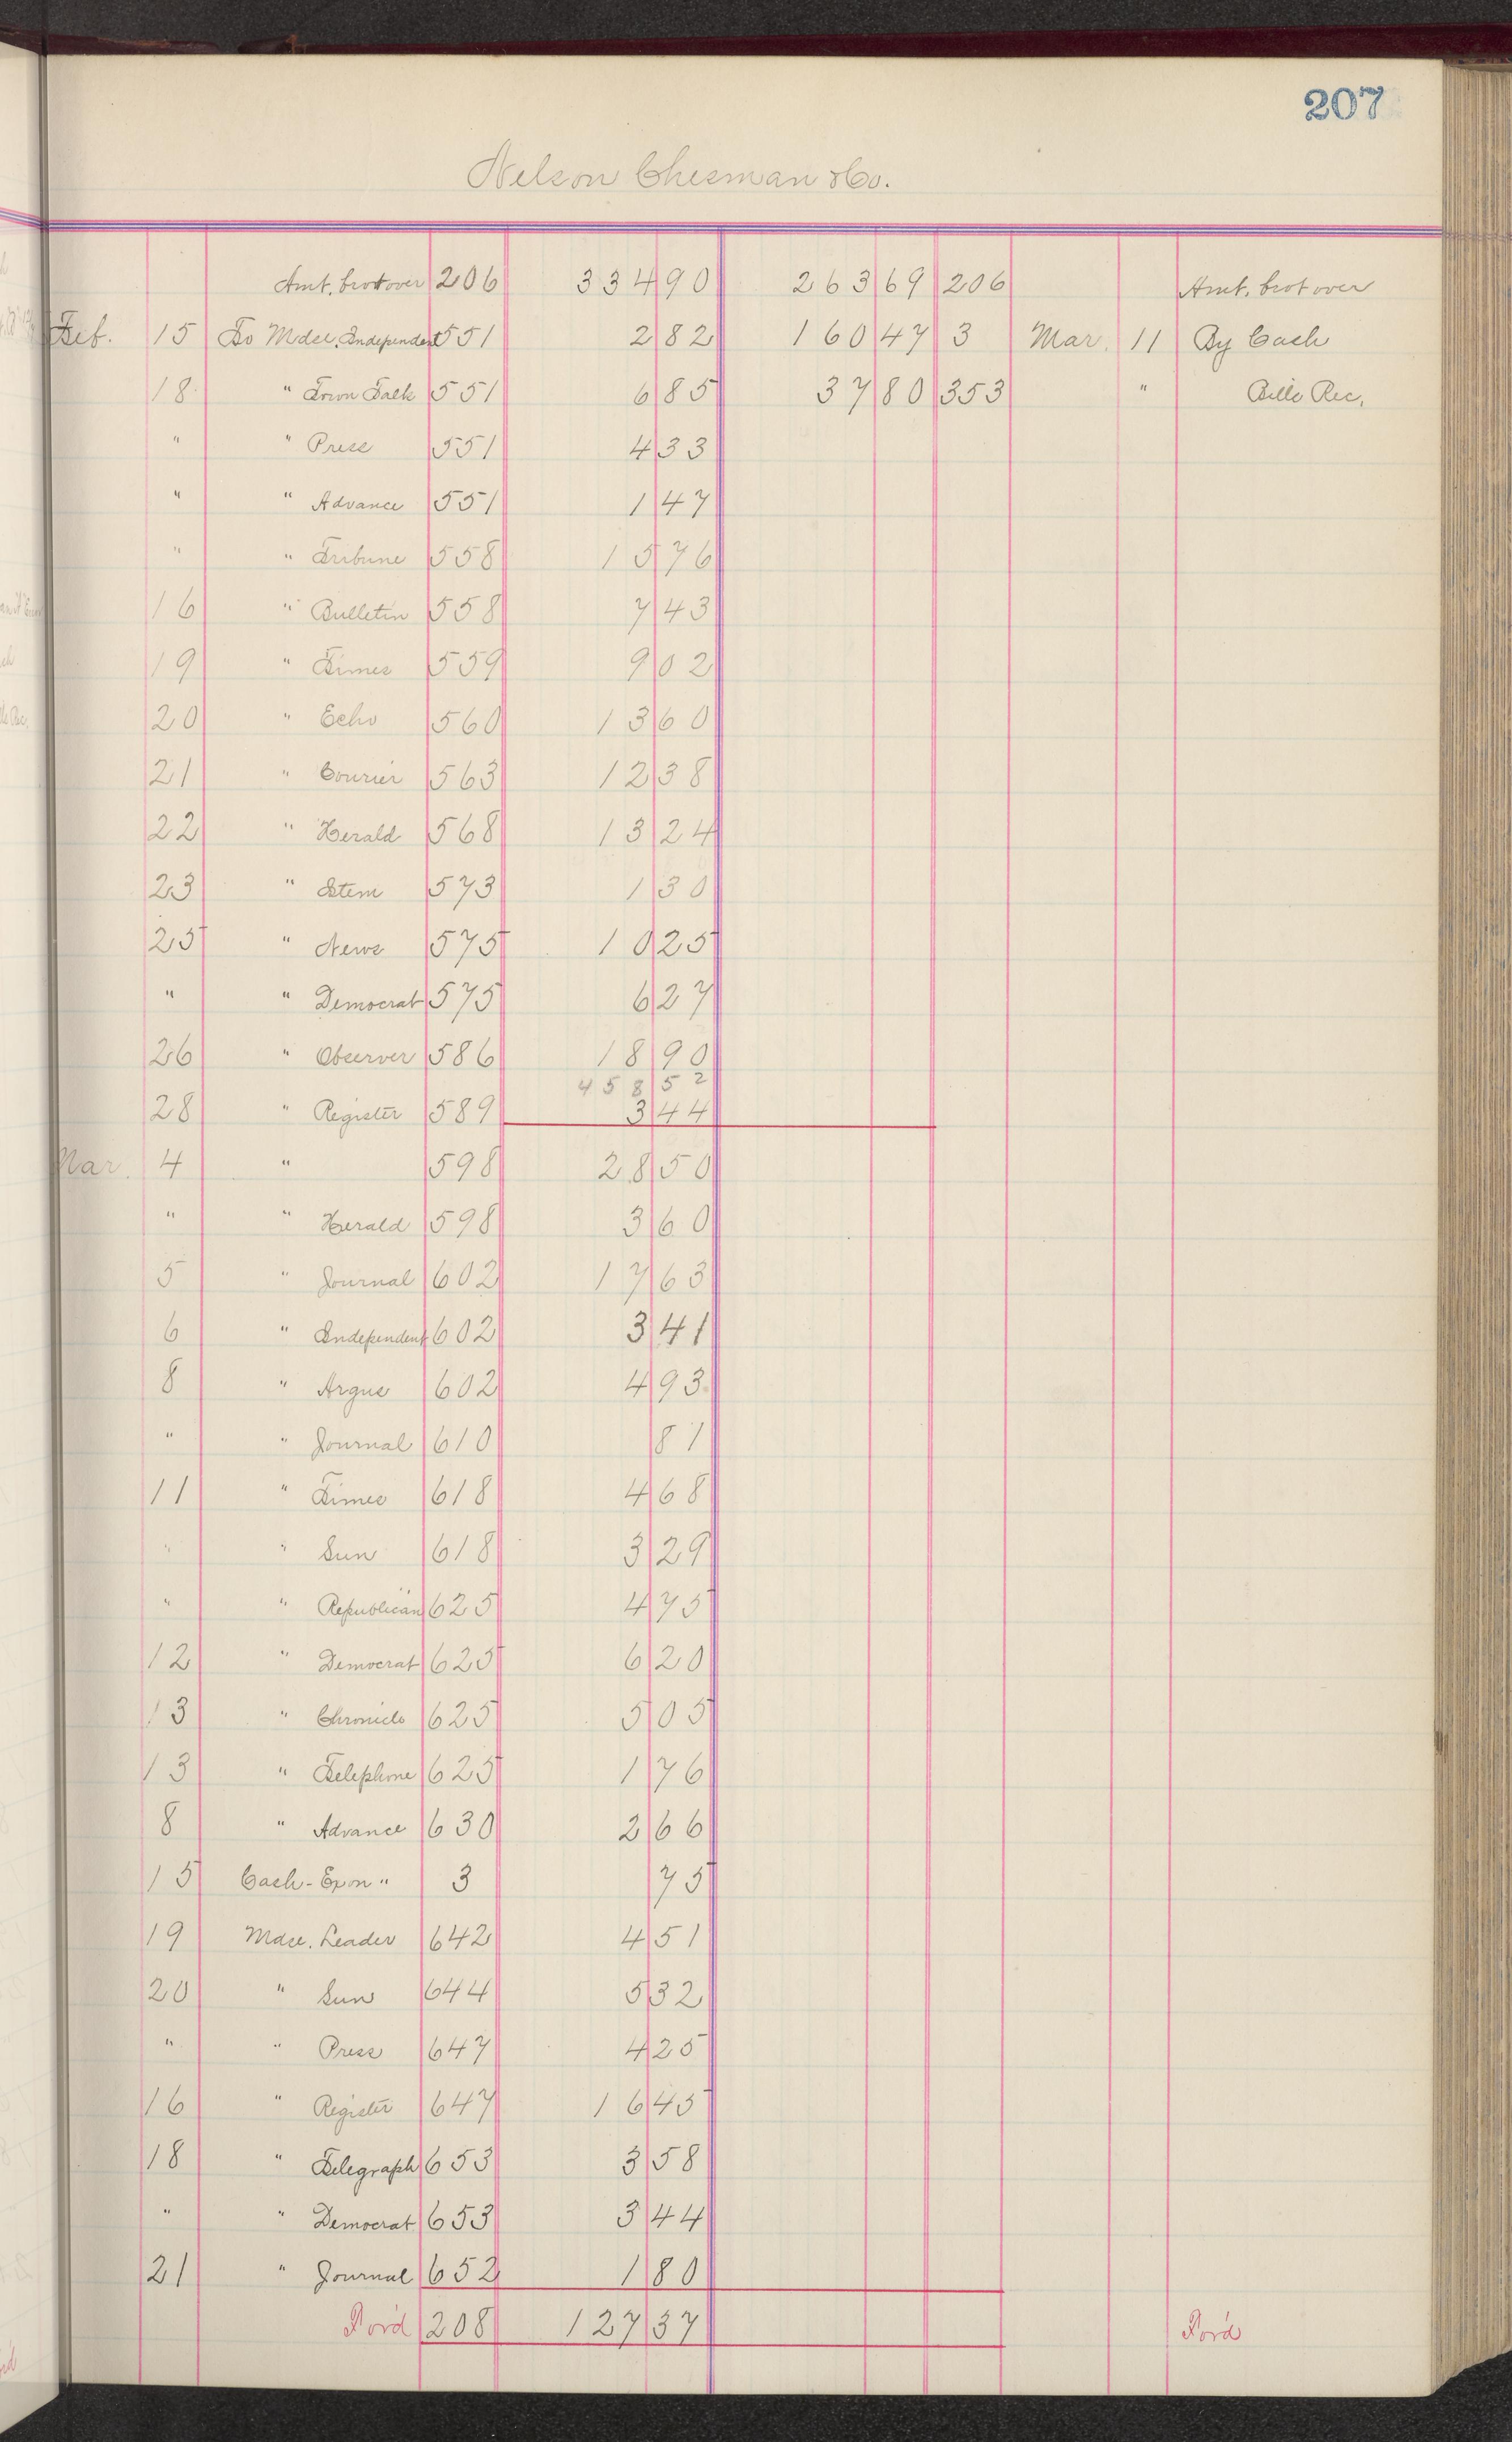 207
Nelson Chesman & Co.
Amt. brot over 206 334 90 263 69 206 Amt. brot over
Feb. 15 To Mdse. Independent 551 2 82 160 47 3 Mar. 11 By Cash
18 " Town Talk 551 6 85 37 80 353 " Bills Rec.
" " Press 551 4 33
" " Advance 551 1 47
" " Tribune 558 15 76
16 " Bulletin 558 7 43
19 " Times 559 9 02
20 " Echo 560 13 60
21 " Courier 563 12 38
22 " Herald 568 13 24
23 " Item 573 1 30
25 " News 575 10 25
" " Democrat 575 6 27
26 " Observer 586 18 90
458 52
28 " Register 589 3 44
Mar. 4 " 598 28 50
" " Herald 598 3 60
5 " Journal 602 17 63
6 " Independent 602 3 41
8 " Argus 602 4 93
" " Journal 610 81
11 " Times 618 4 68
" " Sun 618 3 29
" " Republican 625 4 75
12 " Democrat 625 6 20
13 " Chronicle 625 5 05
13 " Telephone 625 1 76
8 " Advance 630 2 66
15 Cash - Expn " 3 75
19 Mdse. Leader 642 4 51
20 " Sun 644 5 32
" " Press 647 4 25
16 " Register 647 16 45
18 " Telegraph 653 3 58
" " Democrat 653 3 44
21 " Journal 652 1 80
For'd 208 127 37 For'd